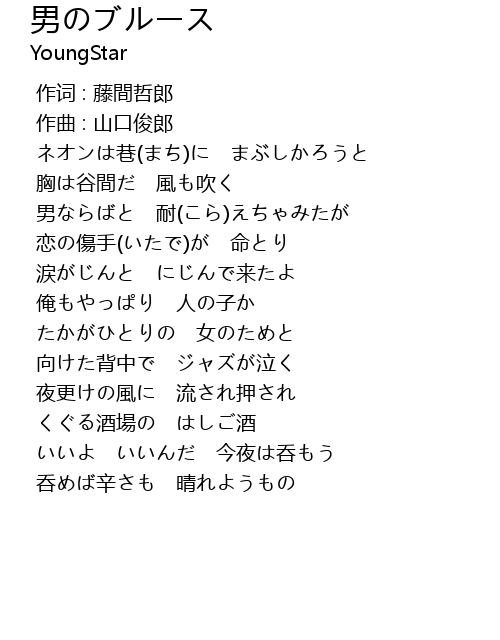 男のブルース
YoungStar
作词 : 藤間哲郎
作曲 : 山口俊郎
ネオンは巷(まち)に　まぶしかろうと
胸は谷間だ　風も吹く
男ならばと　耐(こら)えちゃみたが
恋の傷手(いたで)が　命とり
涙がじんと　にじんで来たよ
俺もやっぱり　人の子か
たかがひとりの　女のためと
向けた背中で　ジャズが泣く
夜更けの風に　流され押され
くぐる酒場の　はしご酒
いいよ　いいんだ　今夜は呑もう
呑めば辛さも　晴れようもの